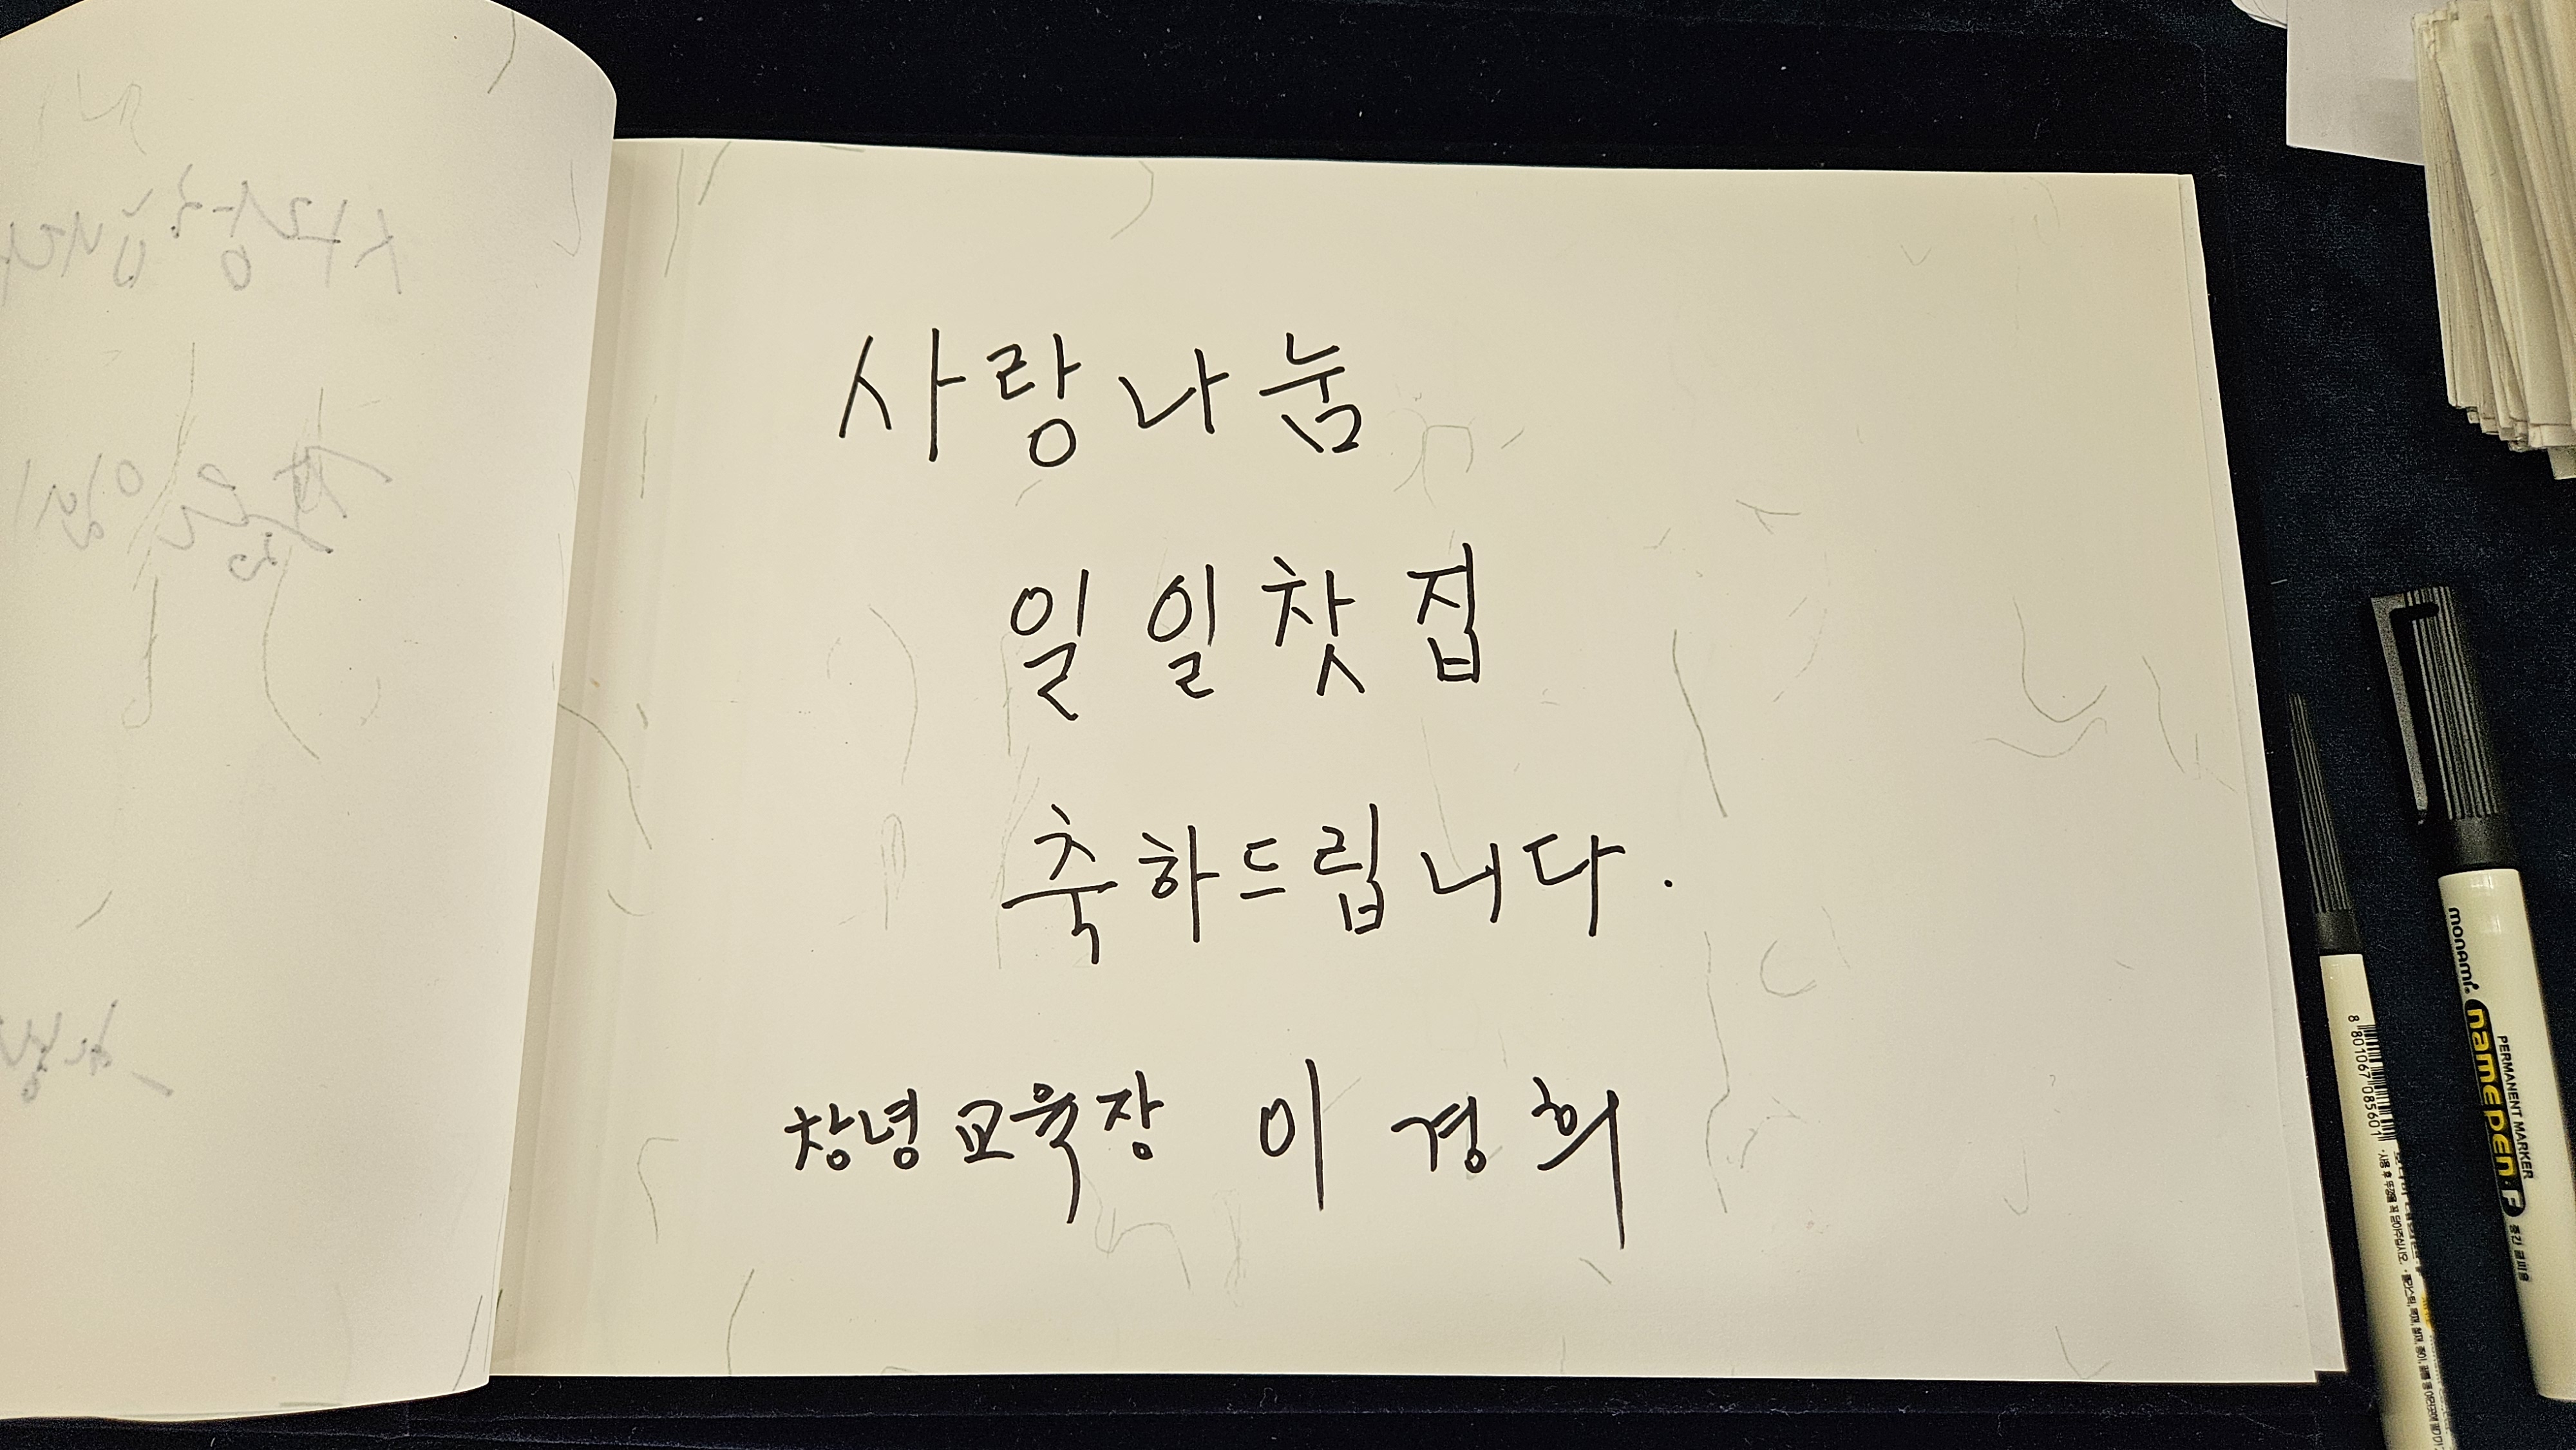 사랑나눔
일일찻집
축하드립니다.
창녕교육장 이경희
monami
namepen·F
PERMANENT MARKER
8 801067 085601